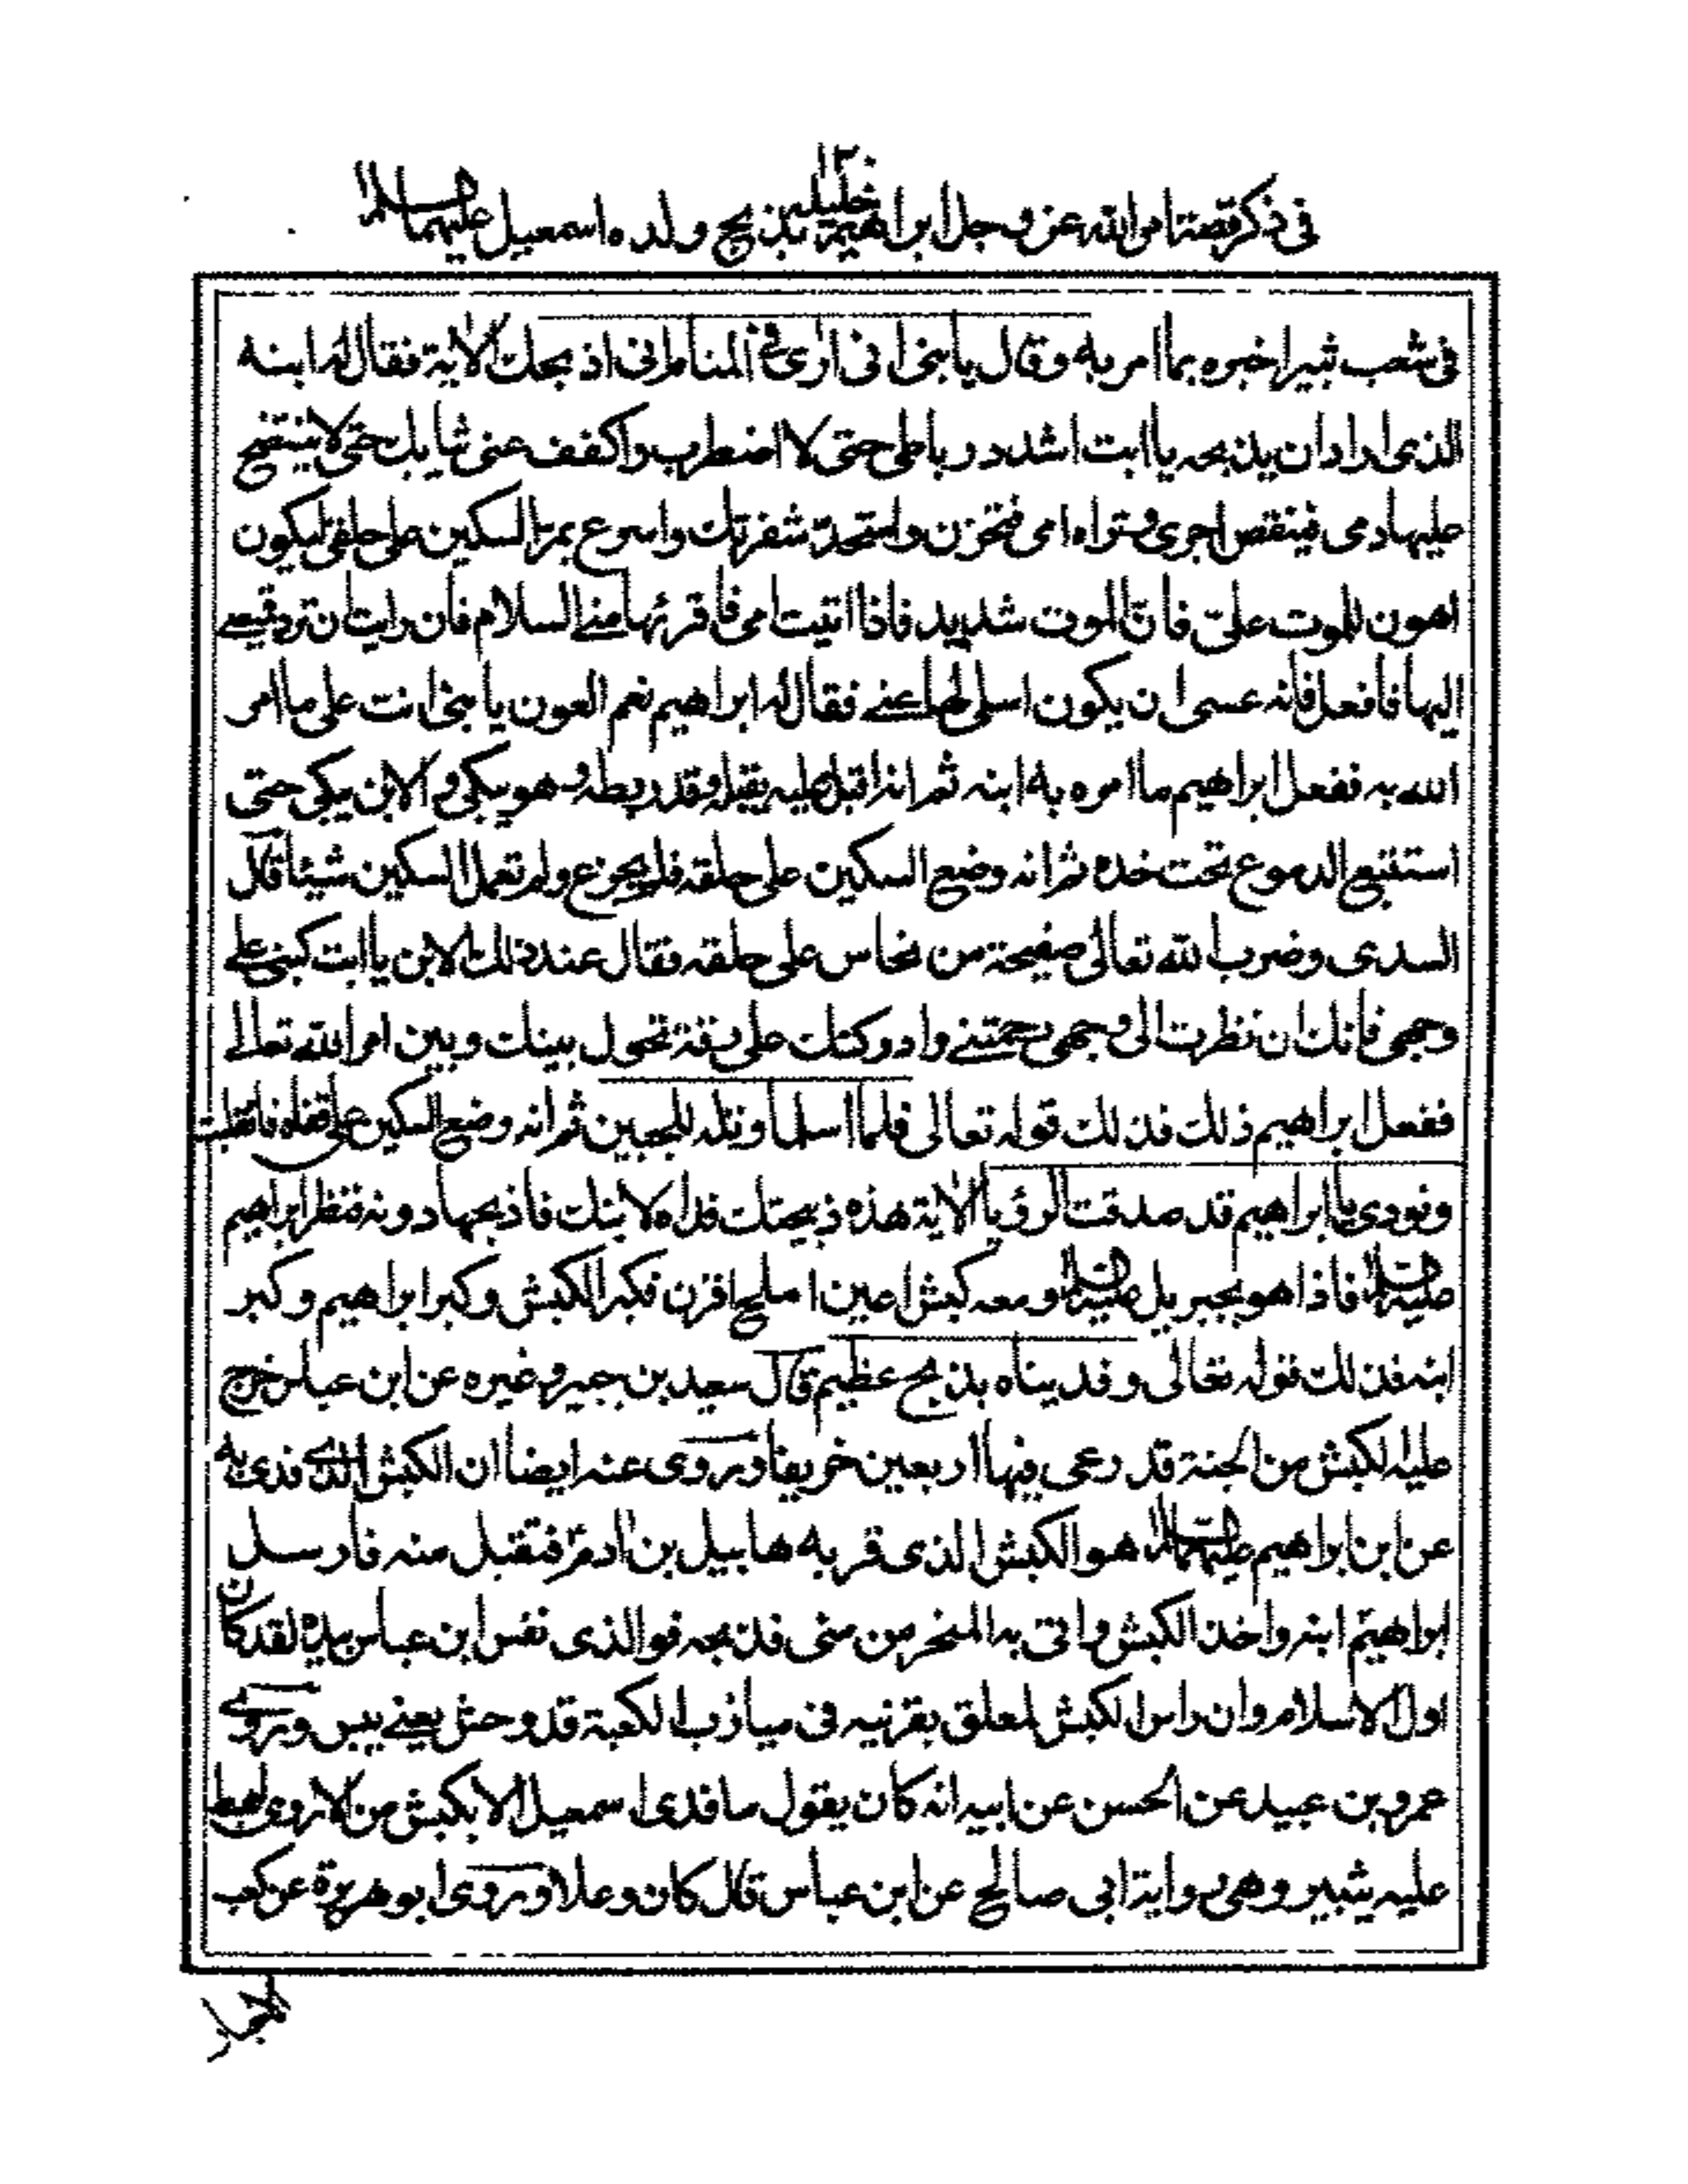 ١٢٠
في ذكر قصة امر الله عز و جل ابراهيم خليله بذبح ولده اسمعيل عليهما السلام
في شعب ثبير اخبره بما امر به وقال يا بنى انى ارى في المنام انى اذبحك الاية فقال له ابنه
الذى اراد ان يذبحه يا ابت اشدد رباطى حتى لا اضطرب واكفف عنى ثيابك حتى لا ينتضح
عليها دمى فينقص اجرى وتراه امى فتحزن واستحد شفرتك واسرع بمر السكين على حلقى ليكون
اهون للموت علىّ فانّ الموت شديد فاذا اتيت امى فاقرئها منے السلام فان رايت ان ترد قميصے
اليها فافعل فانه عسى ان يكون اسلى لها عنے فقال له ابراهيم نعم العون يا بنى انت على ما امر
الله به ففعل ابراهيم ما امره به ابنه ثم انه اقبل عليه يقبله وقد ربطه وهو يبكى والابن يبكى حتى
استنقع الدموع تحت خده ثم انه وضع السكين على حلقه فلم يحزع ولم تعمل السكين شيئا قال
السدى وضرب الله تعالى صفيحة من نحاس على حلقه فقال عند ذلك الابن يا ابت كبنى على
وجهى فانك ان نظرت الى وجهى رحمتنے وادركتك على رقة تحول بينك وبين امر الله تعالى
ففعل ابراهيم ذلك فذلك قوله تعالى فلما اسلما وتله للجبين ثم انه وضع السكين على قفاه فانقلبت
ونودى يا ابراهيم قد صدقت الرؤيا الاية هذه ذبيحتك فداء لابنك فاذبحها دونه فنظر ابراهيم
عليه السلام فاذا هو بجبريل عليه السلام ومعه كبش اعين املح اقرن فكبر الكبش وكبر ابراهيم وكبر
ابنه فذلك قوله تعالى وفديناه بذبح عظيم قال سعيد بن جبير وغيره عن ابن عباس خرج
عليه الكبش من الجنة قد رعى فيها اربعين خريفا وروى عنه ايضا ان الكبش الذى فدى به
عن ابن ابراهيم عليهما السلام هو الكبش الذى قربه هابيل بن ادم فتقبل منه فارسل
ابراهيم ابنه واخذ الكبش واتى به المنحر من منى فذبحه فوالذى نفس ابن عباس بيده لقد كان
اول الاسلام وان راس الكبش لمعلق بقرنيه فى ميازب الكعبة قد وحش يعنے يبس وروے
عمرو بن عبيد عن الحسن عن ابيه انه كان يقول ما فدى اسمعيل الا بكبش من الاروى اهبط
عليه بثبير وهى رواية ابى صالح عن ابن عباس قال كان وعلا وروى ابو هريرة عن كعب